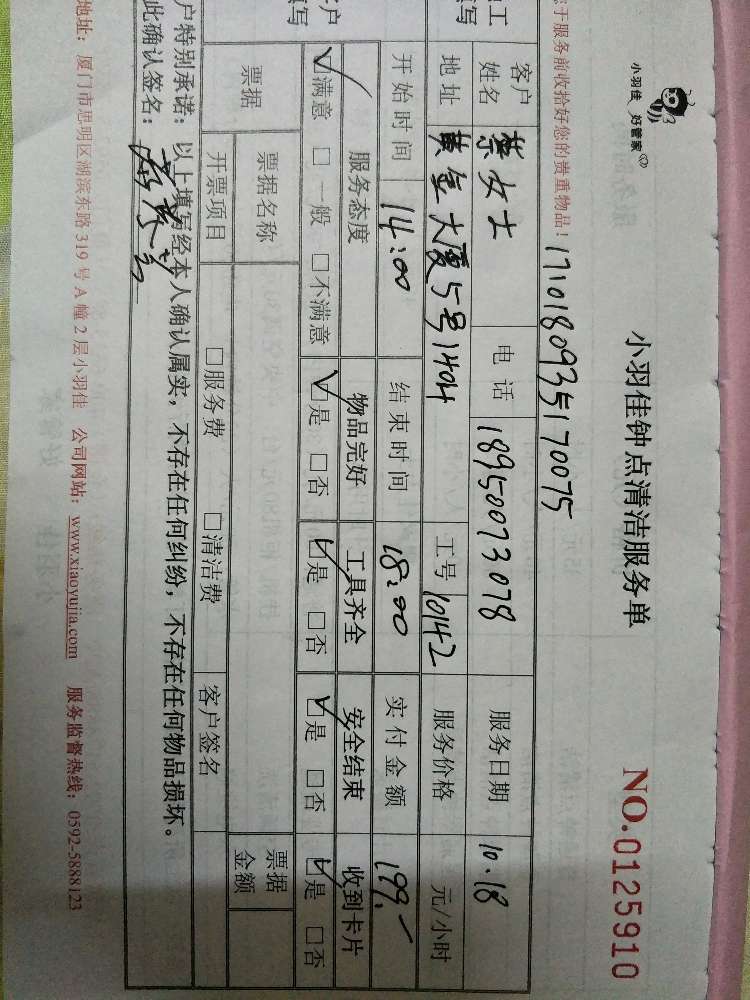 小羽佳 好管家
小羽佳钟点清洁服务单
NO.0125910
于服务前收拾好您的贵重物品！ 1710180935170075
工 客户姓名 蔡女士 电话 18950073078 服务日期 10.18
填写 地址 黄金大厦5号1404 工号 10142 服务价格 元/小时
开始时间 14:00 结束时间 18:00 实付金额 199.-
客户填写 服务态度 物品完好 工具齐全 安全结束 收到卡片
☑满意 □一般 □不满意 ☑是 □否 ☑是 □否 ☑是 □否 ☑是 □否
票据 票据名称 票据金额
开票项目 □服务费 □清洁费 客户签名
户特别承诺：以上填写经本人确认属实，不存在任何纠纷，不存在任何物品损坏。
此确认签名：
地址：厦门市思明区湖滨东路319号A幢2层小羽佳 公司网站：www.xiaoyujia.com 服务监督热线：0592-5888123